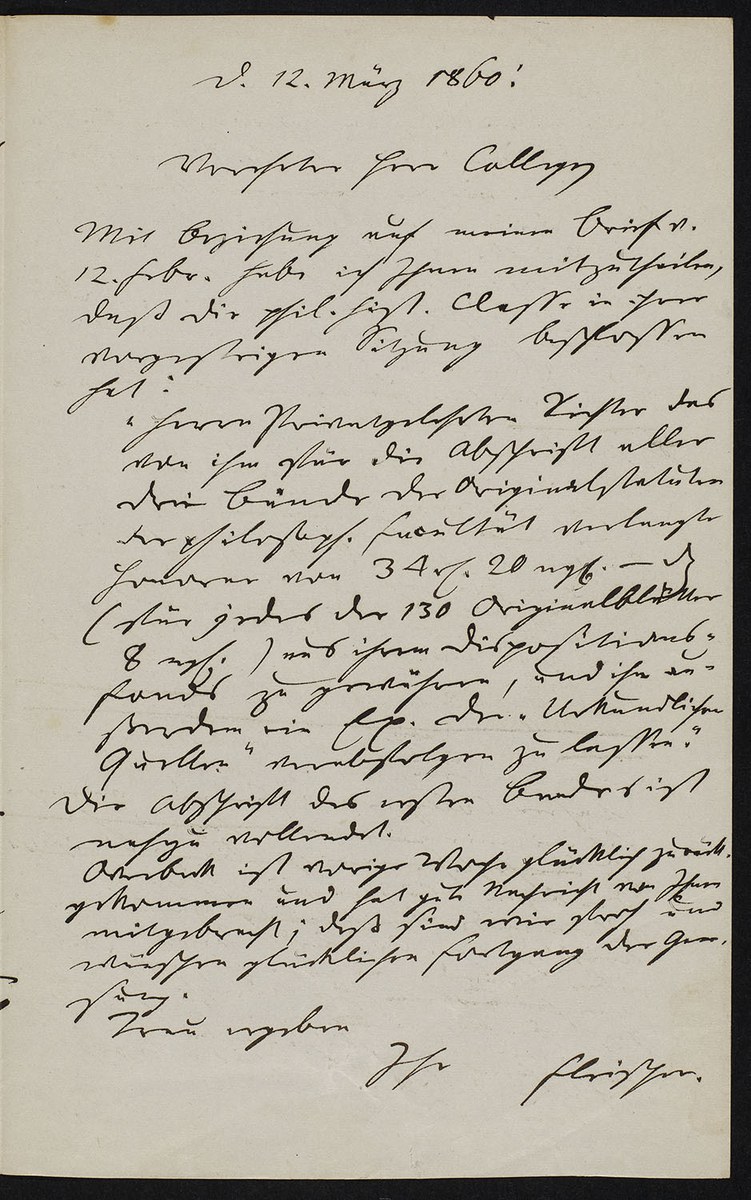 d. 12. März 1860.
Verehrter Herr College,
Mit Beziehung auf meinen Brief v.
12. Febr. habe ich Ihnen mitzutheilen,
daß die phil. hist. Classe in ihrer
vorgestrigen Sitzung beschlossen
hat:
„Herrn Privatgelehrten Richter das
von ihm für die Abschrift aller
drei Bände der Originalstatuten
der philosoph. Facultät verlangte
Honorar von 34 rf. 20 ngr. —
(für jedes der 130 Originalblätter
8 ngr.) aus ihrem Dispositions-
fonds zu gewähren, und ihm au-
ßerdem ein Ex. der „Urkundlichen
Quellen“ verabfolgen zu lassen.“
Die Abschrift des ersten Bandes ist
nahezu vollendet.
Overbeck ist vorige Woche glücklich zurück-
gekommen und hat gute Nachricht von Ihnen
mitgebracht; deß sind wir froh und
wünschen glücklichen Fortgang der Gene-
sung.
Treu ergeben
Ihr Fleischer.